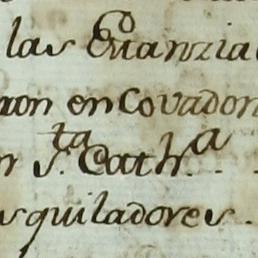 las Evanzia
ron en Covadon
n S.ta Cath.a
squiladores.